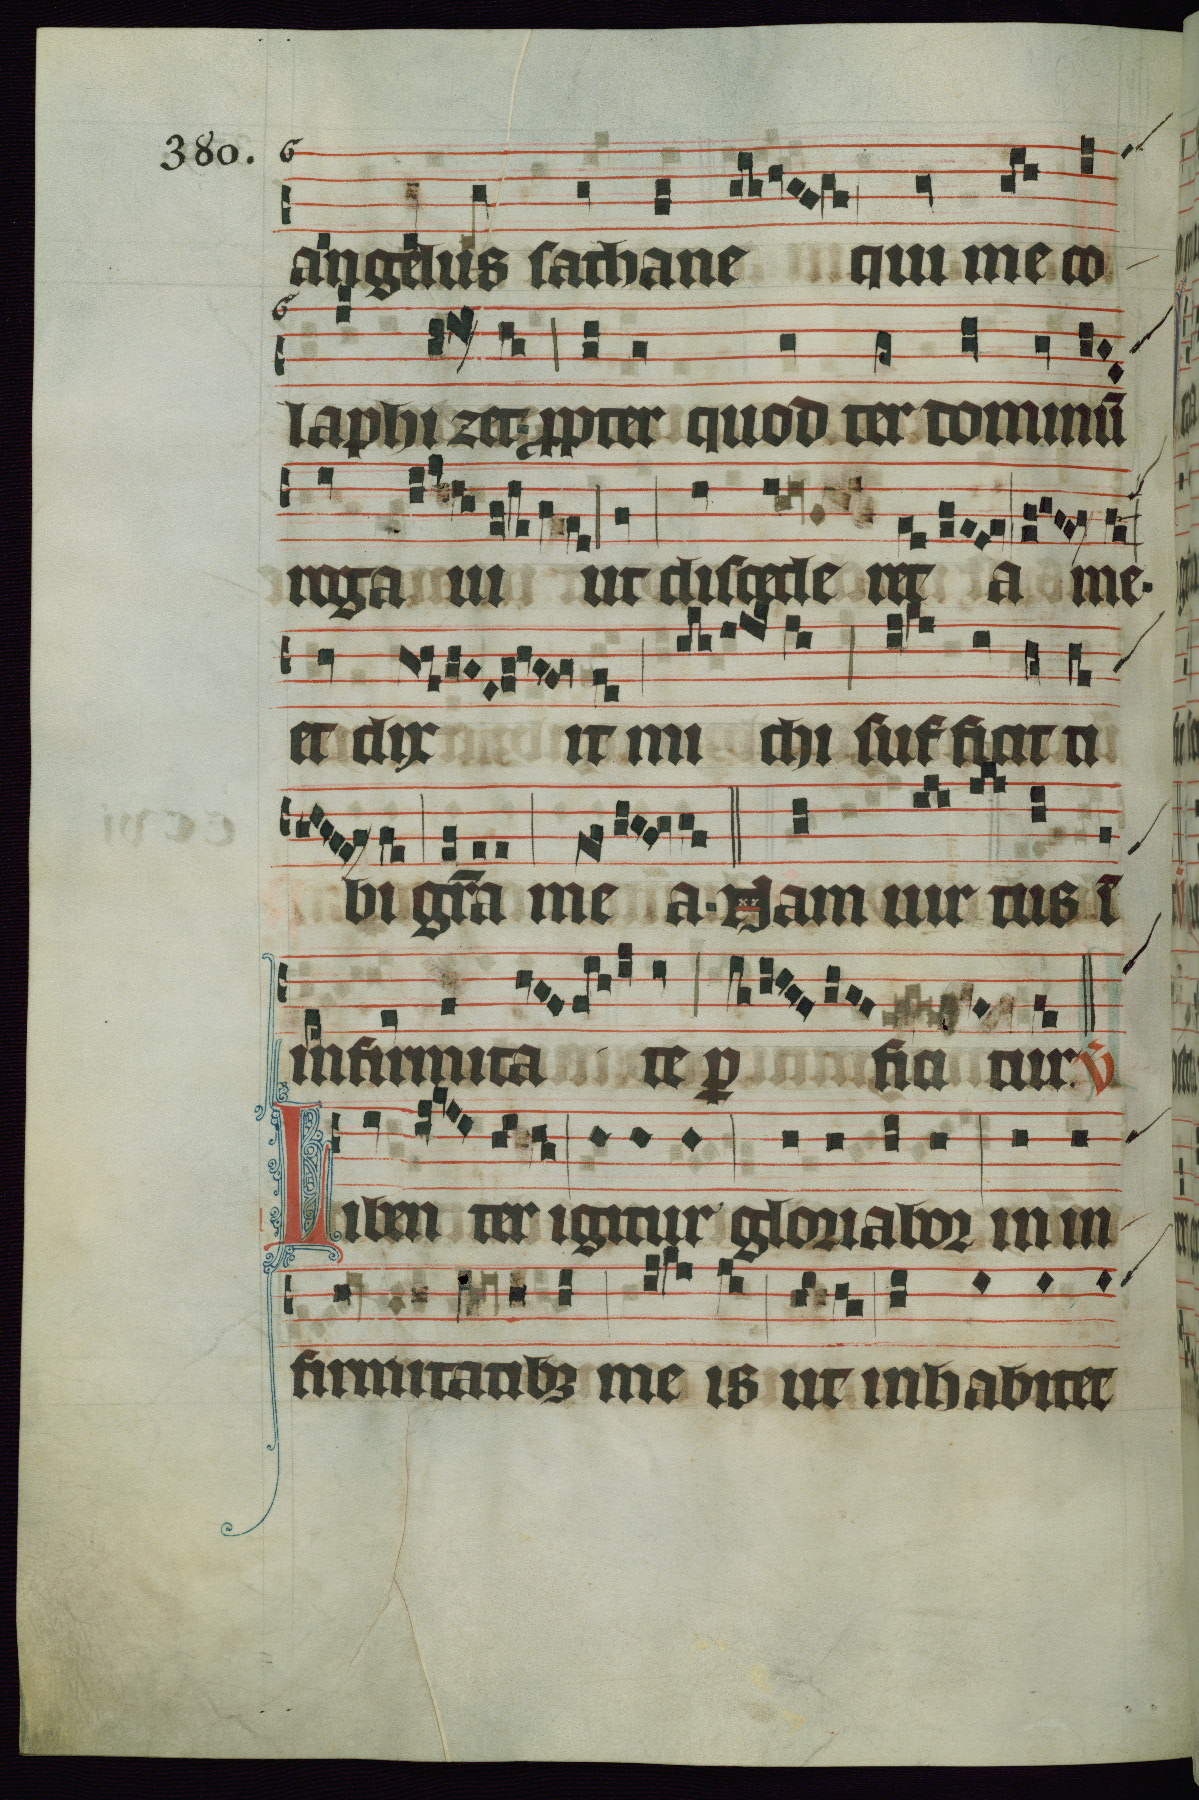 380.
angelus sathane qui me co
laphi zet. ꝓpter quod ter dominū
roga ui ut discede ret a me.
et dix it mi chi suf ficit ti
bi gr̄a me a. Nam uir tus ī
infirmita te ꝑ fici tur. V̄
Liben ter igitur gloriabor in in
firmitatibꝫ me is ut inhabitet